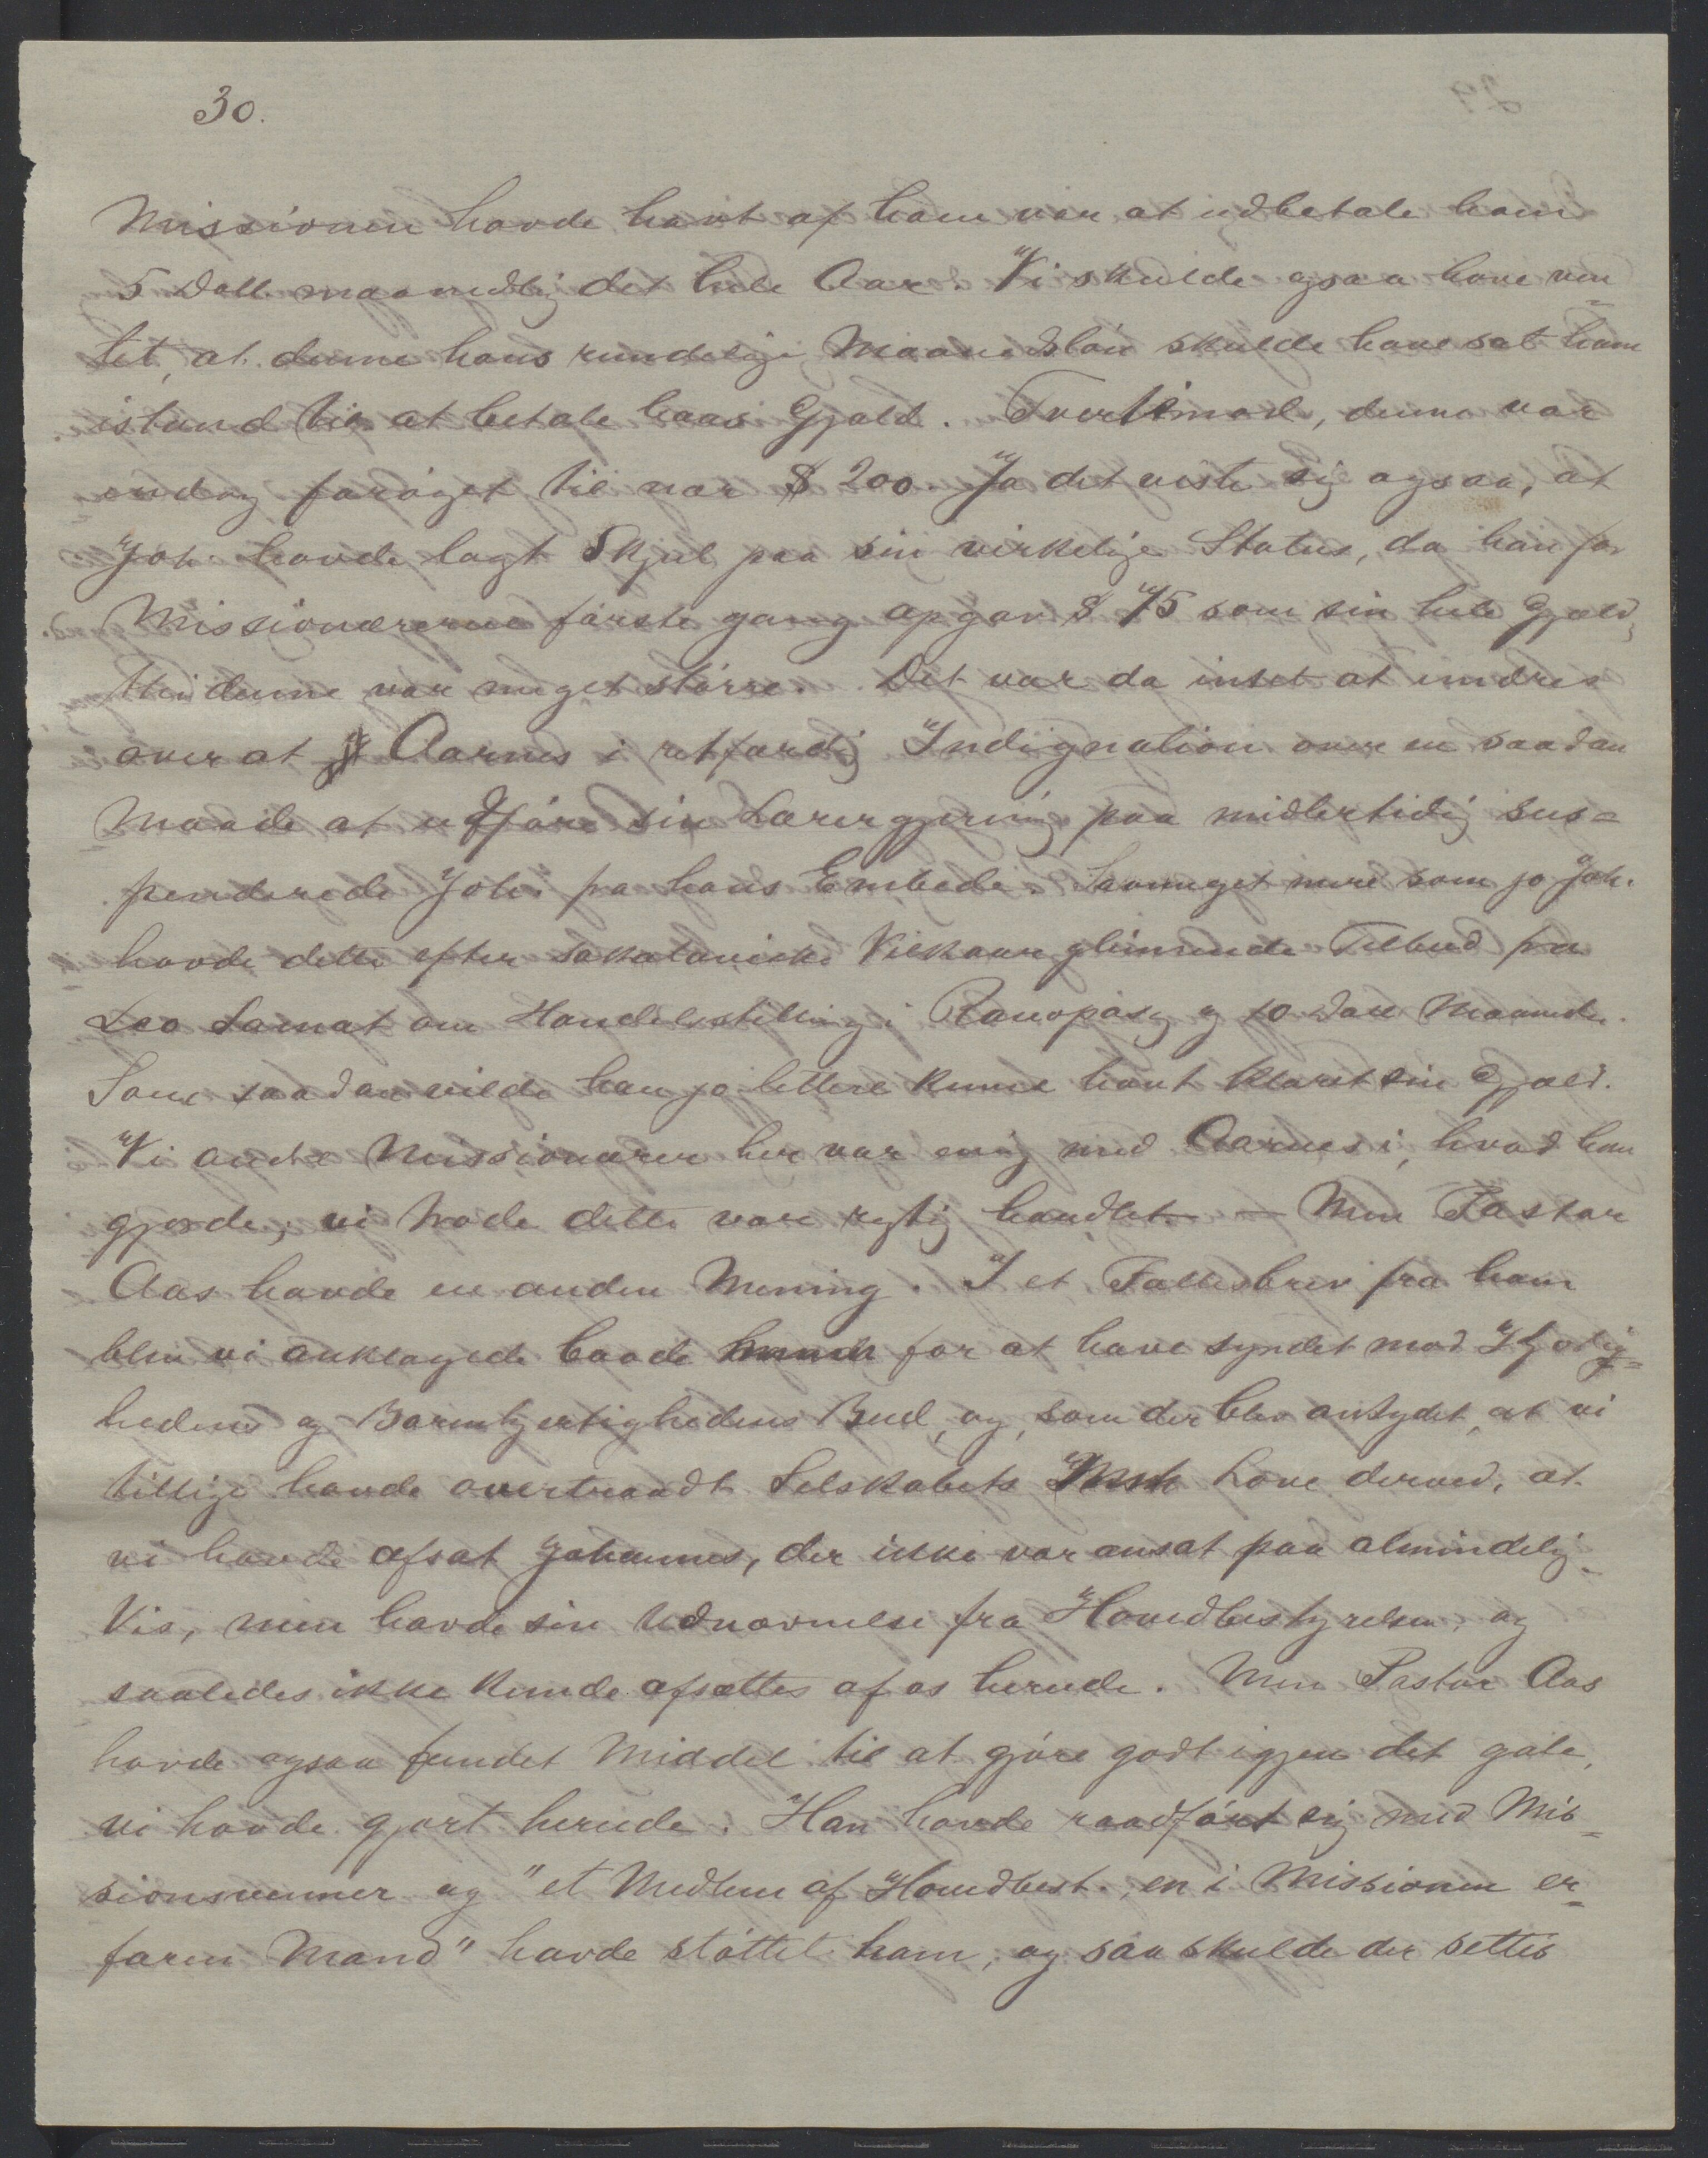 30.
Missionen havde havt af ham var at udbetale ham
5 Doll. maanedlig det hele Aar. Vi skulde ogsaa have ven
tet, at denne hans rundelige Maanedslön skulde have sat ham
istand til at betale hans Gjæld. Tvertimod, denne var
endog foröget til nær $ 200. Ja det viste sig ogsaa, at
Joh. havde lagt Skjul paa sin virkelige Status, da han for
Missionærerne förste gang opgav $ 75 som sin hele Gjæld,
thi denne var meget större. Det var da intet at undres
over at Aarnes i retfærdig Indignation over en saadan
Maade at udföre sin Lærergjerning paa midlertidig sus=
penderede Joh. fra hans Embede. Saameget mere som jo Joh.
havde dette efter sakalaviske Vilkaar glimrende Tilbud fra
Leo Samat om Handelsstilling i Ranopasy og 10 Doll Maaneden.
Som saadan vilde han jo lettere kunne havt klaret sin Gjæld.
Vi andre Missionærer her var enig med Aarnes i, hvad han
gjorde, vi troede dette være rigtig handlet. – Men Pastor
Aas havde en anden Mening. I et Fællesbrev fra ham
blev vi anklagede baade for at have syndet mod Kjærlig=
hedens og Barmhjertighedens Bud, og, som der blev antydet, at vi
tillige havde overtraadt Selskabets Love derved, at
vi havde afsat Johannes, der ikke var ansat paa almindelig
Vis, men havde sin Udnævnelse fra Hovedbestyrelsen, og
saaledes ikke kunde afsættes af os herude. Men Pastor Aas
havde ogsaa fundet Middel til at gjöre godt igjen det gale,
vi havde gjort herude. Han havde raadfört sig med Mis=
sionsvenner og "et Medlem af Hovedbest., en i Missionen er=
faren Mand" havde stöttet ham, og saa skulde der settes